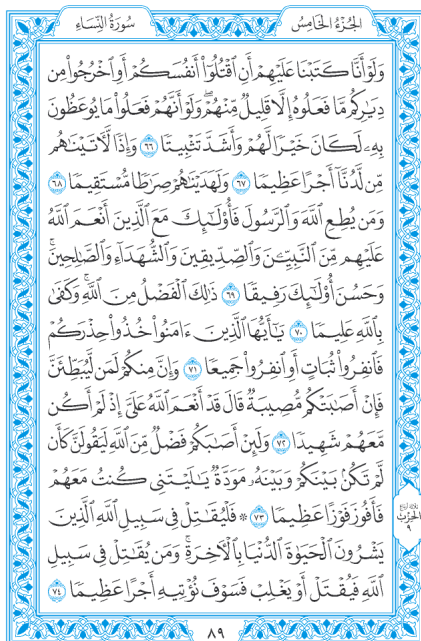 الجُزْءُ الخَامِسُ
سُورَةُ النِّسَاءِ
وَلَوْ أَنَّا كَتَبْنَا عَلَيْهِمْ أَنِ ٱقْتُلُوٓا۟ أَنفُسَكُمْ أَوِ ٱخْرُجُوا۟ مِن
دِيَـٰرِكُم مَّا فَعَلُوهُ إِلَّا قَلِيلٌ مِّنْهُمْ ۖ وَلَوْ أَنَّهُمْ فَعَلُوا۟ مَا يُوعَظُونَ
بِهِۦ لَكَانَ خَيْرًا لَّهُمْ وَأَشَدَّ تَثْبِيتًا ٦٦ وَإِذًا لَّـَٔاتَيْنَـٰهُم
مِّن لَّدُنَّآ أَجْرًا عَظِيمًا ٦٧ وَلَهَدَيْنَـٰهُمْ صِرَٰطًا مُّسْتَقِيمًا ٦٨
وَمَن يُطِعِ ٱللَّهَ وَٱلرَّسُولَ فَأُو۟لَـٰٓئِكَ مَعَ ٱلَّذِينَ أَنْعَمَ ٱللَّهُ
عَلَيْهِم مِّنَ ٱلنَّبِيِّـۧنَ وَٱلصِّدِّيقِينَ وَٱلشُّهَدَآءِ وَٱلصَّـٰلِحِينَ ۚ
وَحَسُنَ أُو۟لَـٰٓئِكَ رَفِيقًا ٦٩ ذَٰلِكَ ٱلْفَضْلُ مِنَ ٱللَّهِ ۚ وَكَفَىٰ
بِٱللَّهِ عَلِيمًا ٧٠ يَـٰٓأَيُّهَا ٱلَّذِينَ ءَامَنُوا۟ خُذُوا۟ حِذْرَكُمْ
فَٱنفِرُوا۟ ثُبَاتٍ أَوِ ٱنفِرُوا۟ جَمِيعًا ٧١ وَإِنَّ مِنكُمْ لَمَن لَّيُبَطِّئَنَّ
فَإِنْ أَصَـٰبَتْكُم مُّصِيبَةٌ قَالَ قَدْ أَنْعَمَ ٱللَّهُ عَلَىَّ إِذْ لَمْ أَكُن
مَّعَهُمْ شَهِيدًا ٧٢ وَلَئِنْ أَصَـٰبَكُمْ فَضْلٌ مِّنَ ٱللَّهِ لَيَقُولَنَّ كَأَن
لَّمْ تَكُنۢ بَيْنَكُمْ وَبَيْنَهُۥ مَوَدَّةٌ يَـٰلَيْتَنِى كُنتُ مَعَهُمْ
فَأَفُوزَ فَوْزًا عَظِيمًا ٧٣ ۞ فَلْيُقَـٰتِلْ فِى سَبِيلِ ٱللَّهِ ٱلَّذِينَ
يَشْرُونَ ٱلْحَيَوٰةَ ٱلدُّنْيَا بِٱلْـَٔاخِرَةِ ۚ وَمَن يُقَـٰتِلْ فِى سَبِيلِ
ٱللَّهِ فَيُقْتَلْ أَوْ يَغْلِبْ فَسَوْفَ نُؤْتِيهِ أَجْرًا عَظِيمًا ٧٤
الحِزْبُ
٩
٨٩